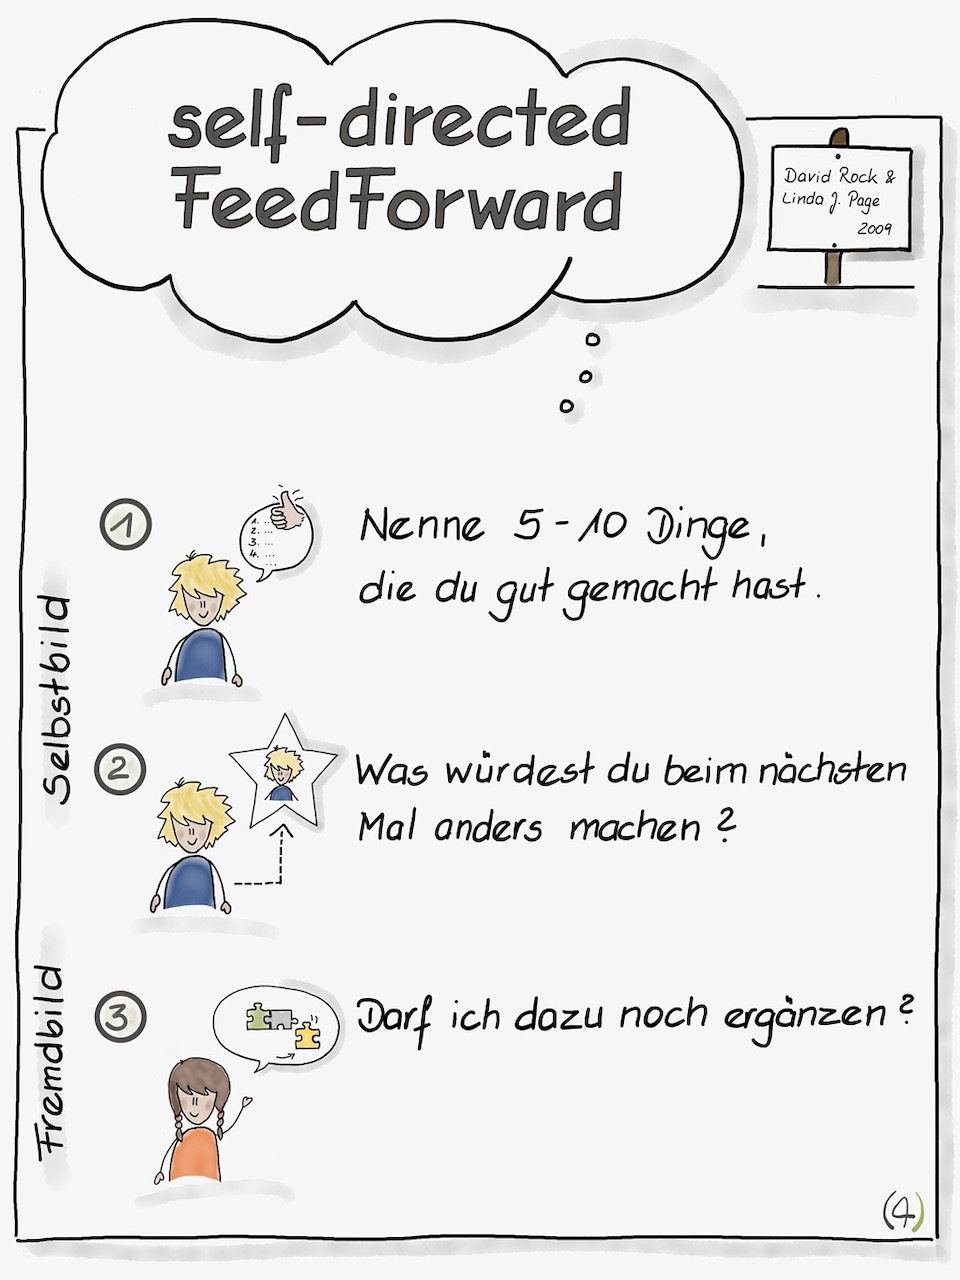 self-directed
FeedForward
David Rock &
Linda J. Page
2009
Selbstbild
1
1. ...
2. ...
3. ...
4. ...
Nenne 5-10 Dinge,
die du gut gemacht hast.
2
Was würdest du beim nächsten
Mal anders machen?
Fremdbild
3
Darf ich dazu noch ergänzen?
(4)